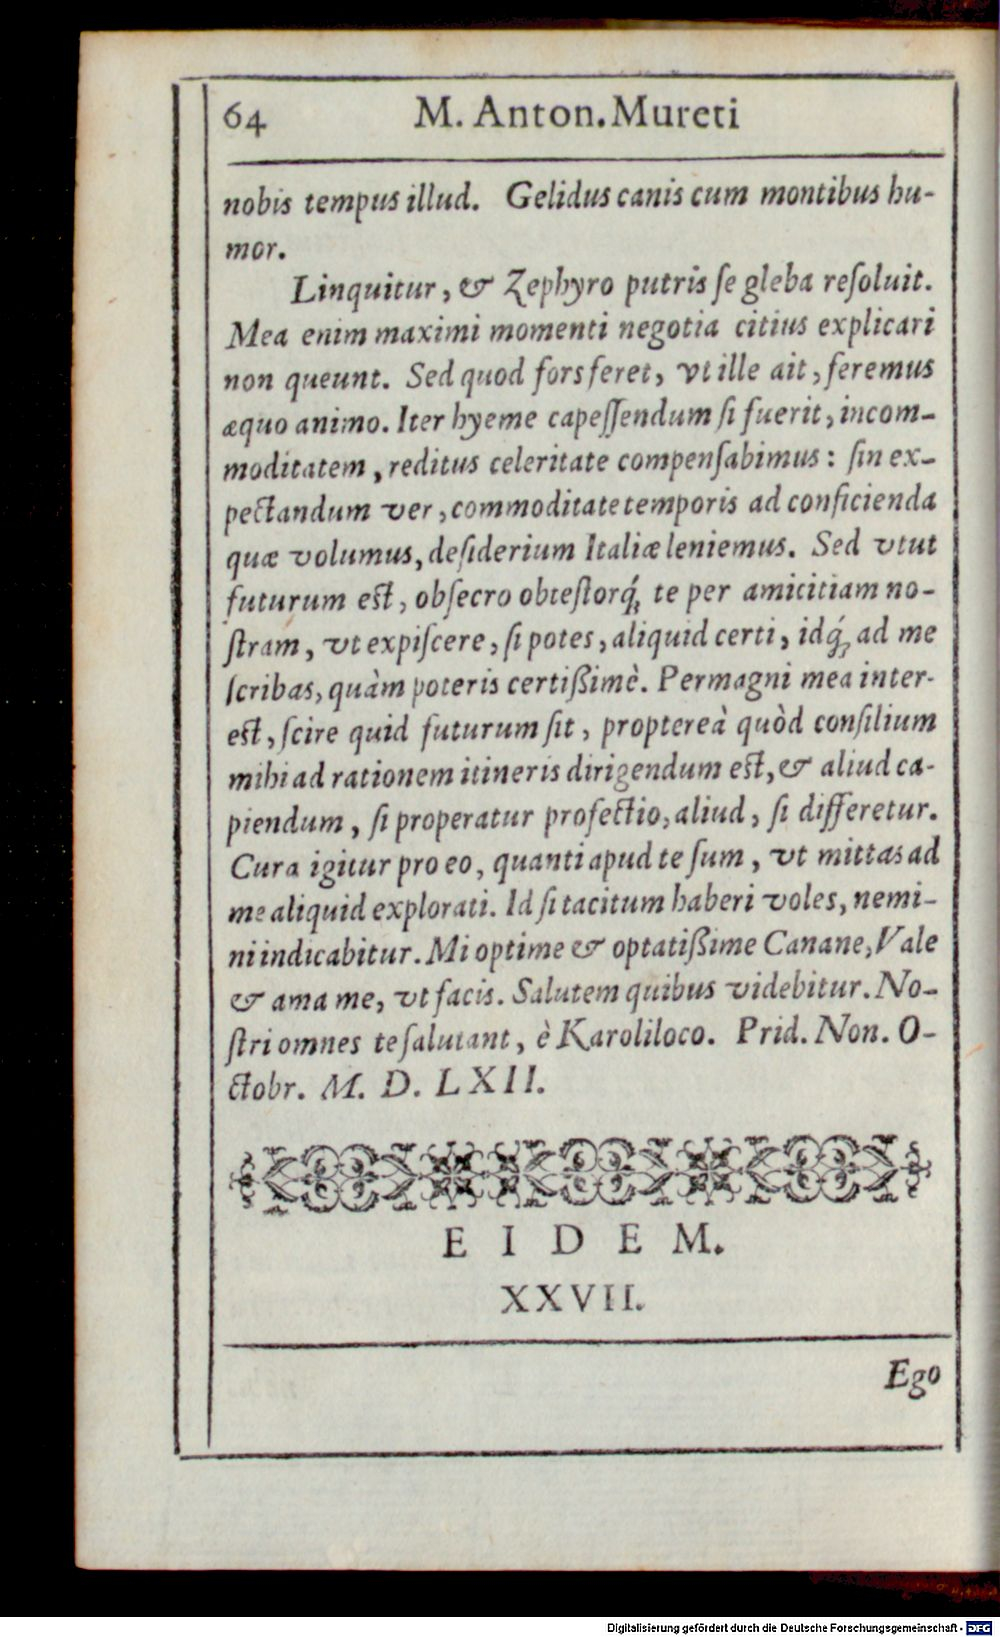 64 M. Anton. Mureti
nobis tempus illud. Gelidus canis cum montibus hu-
mor.
Linquitur, & Zephyro putris se gleba resoluit.
Mea enim maximi momenti negotia citius explicari
non queunt. Sed quod fors feret, vt ille ait, feremus
æquo animo. Iter hyeme capeſſendum ſi fuerit, incom-
moditatem, reditus celeritate compenſabimus: ſin ex-
pectandum ver, commoditate temporis ad conficienda
quæ volumus, deſiderium Italiæ leniemus. Sed vtut
futurum eſt, obſecro obteſtorq́; te per amicitiam no-
ſtram, vt expiſcere, ſi potes, aliquid certi, idq́; ad me
ſcribas, quàm poteris certißimè. Permagni mea inter-
eſt, ſcire quid futurum ſit, proptereà quòd conſilium
mihi ad rationem itineris dirigendum eſt, & aliud ca-
piendum, ſi properatur profectio, aliud, ſi differetur.
Cura igitur pro eo, quanti apud te ſum, vt mittas ad
me aliquid explorati. Id ſi tacitum haberi voles, nemi-
ni indicabitur. Mi optime & optatißime Canane, Vale
& ama me, vt facis. Salutem quibus videbitur. No-
ſtri omnes te ſalutant, è Karoliloco. Prid. Non. O-
ctobr. M. D. LXII.
EIDEM.
XXVII.
Ego
Digitalisierung gefördert durch die Deutsche Forschungsgemeinschaft - DFG